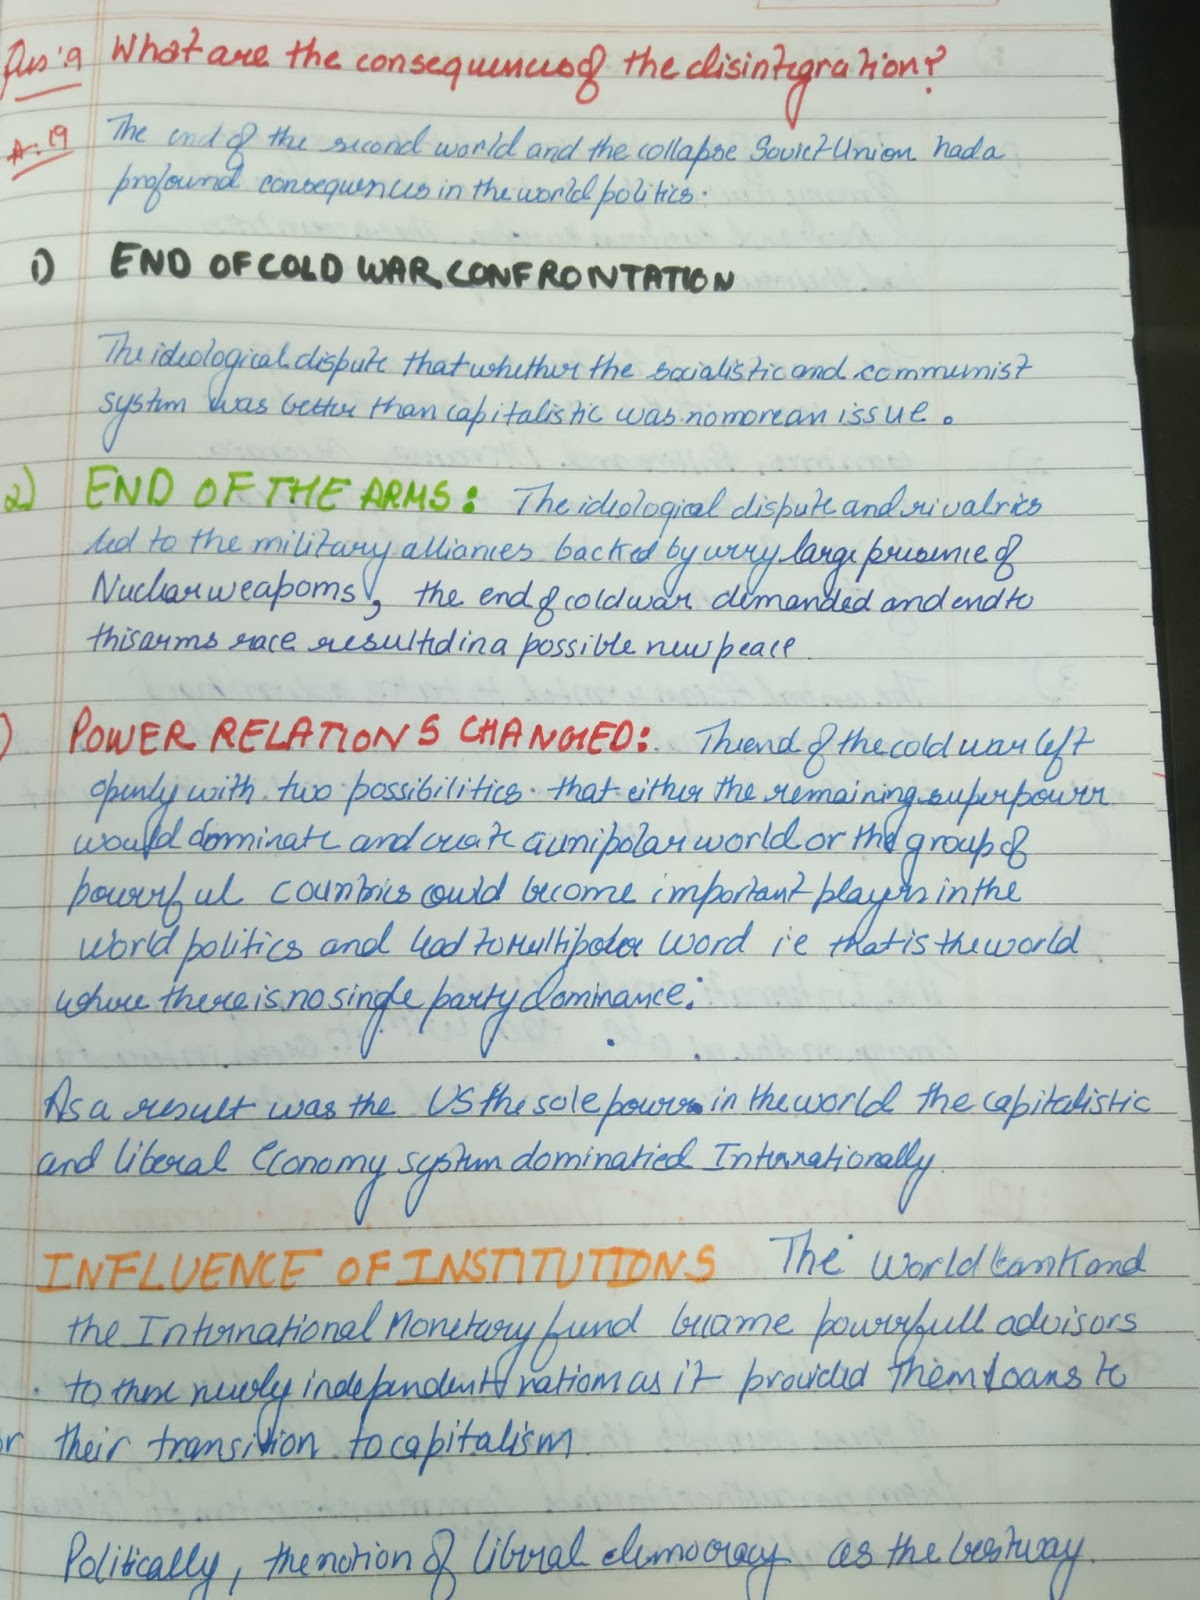 Qus:9 What are the consequences of the disintegration?
A:19 The end of the second world and the collapse Soviet Union had a
profound consequences in the world politics.
1) END OF COLD WAR CONFRONTATION
The ideological dispute that whether the socialistic and communist
system was better than capitalistic was no more an issue.
2) END OF THE ARMS: The ideological dispute and rivalries
led to the military alliances backed by very large presence of
Nuclear weapoms, the end of cold war demanded and end to
this arms race resulted in a possible new peace
) POWER RELATIONS CHANGED: The end of the cold war left
openly with two possibilities. that either the remaining superpower
would dominate and create a unipolar world or the group of
powerful countries could become important players in the
world politics and lead to multipolar word i.e that is the world
where there is no single party dominance.
As a result was the US the sole power in the world the capitalistic
and liberal economy system dominatied Internationally
INFLUENCE OF INSTITUTIONS The World bank and
the International Monetary fund became powerfull advisors
to these newly independent nations as it provided them loans to
or their transition to capitalism
Politically, the notion of liberal democracy as the best way.